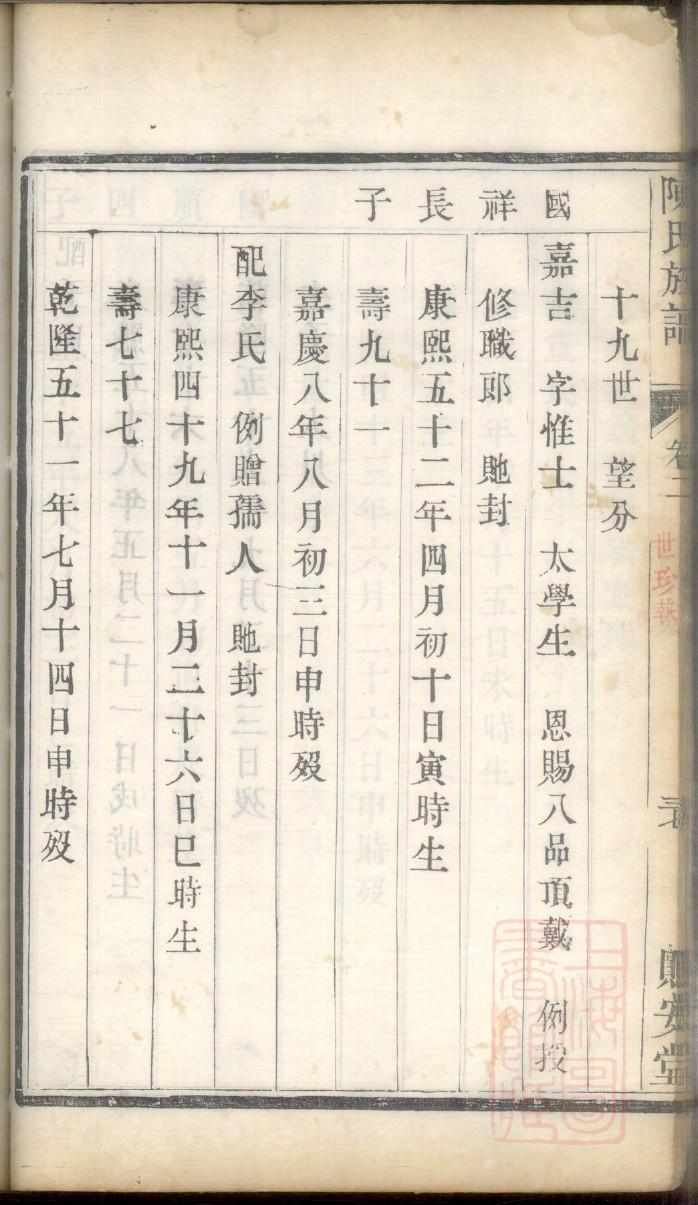 陳氏族譜 卷二
世珍執
貽安堂
十九世 望分
國祥長子
嘉吉 字惟士 太學生 恩賜八品頂戴 例授
修職郎 貤封
康熙五十二年四月初十日寅時生
壽九十一
嘉慶八年八月初三日申時殁
配李氏 例贈孺人 貤封
康熙四十九年十一月二十六日巳時生
壽七十七
乾隆五十一年七月十四日申時殁
上海圖書館藏